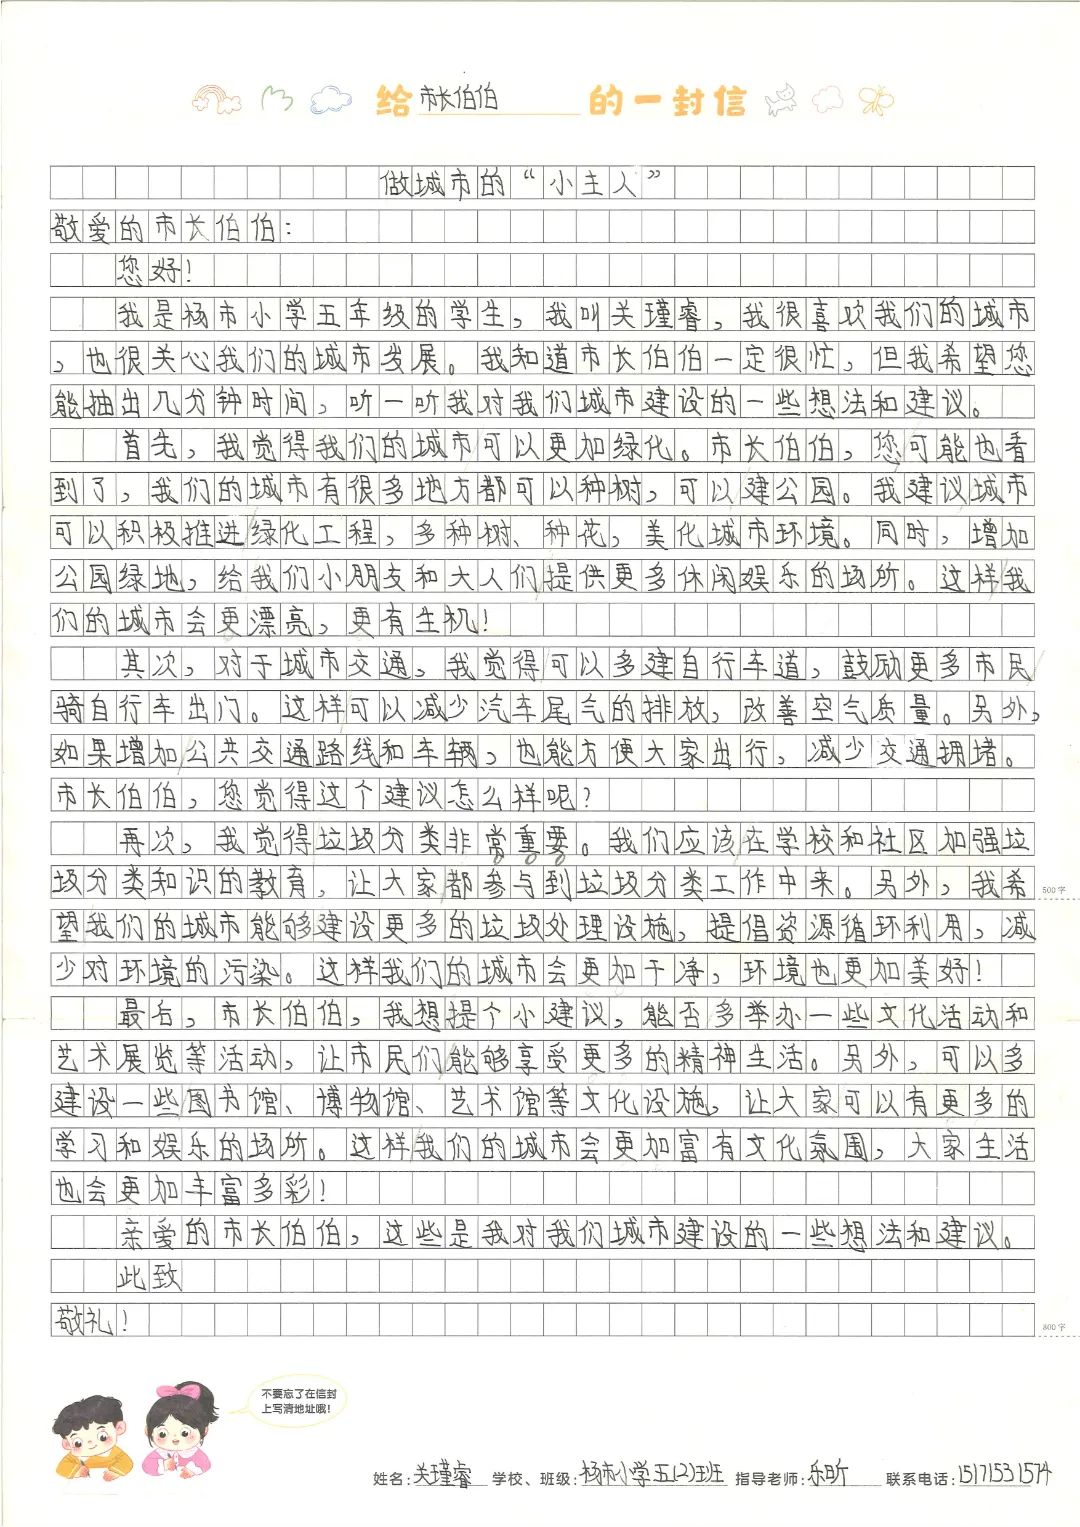 给市长伯伯的一封信
做城市的“小主人”
敬爱的市长伯伯：
您好！
我是杨市小学五年级的学生，我叫关瑾睿，我很喜欢我们的城市
，也很关心我们的城市发展。我知道市长伯伯一定很忙，但我希望您
能抽出几分钟时间，听一听我对我们城市建设的一些想法和建议。
首先，我觉得我们的城市可以更加绿化。市长伯伯，您可能也看
到了，我们的城市有很多地方都可以种树，可以建公园。我建议城市
可以积极推进绿化工程，多种树、种花，美化城市环境。同时，增加
公园绿地，给我们小朋友和大人们提供更多休闲娱乐的场所。这样我
们的城市会更漂亮，更有生机！
其次，对于城市交通，我觉得可以多建自行车道，鼓励更多市民
骑自行车出门。这样可以减少汽车尾气的排放，改善空气质量。另外，
如果增加公共交通路线和车辆，也能方便大家出行，减少交通拥堵。
市长伯伯，您觉得这个建议怎么样呢？
再次，我觉得垃圾分类非常重要。我们应该在学校和社区加强垃
圾分类知识的教育，让大家都参与到垃圾分类工作中来。另外，我希
500字
望我们的城市能够建设更多的垃圾处理设施，提倡资源循环利用，减
少对环境的污染。这样我们的城市会更加干净，环境也更加美好！
最后，市长伯伯，我想提个小建议，能否多举办一些文化活动和
艺术展览等活动，让市民们能够享受更多的精神生活。另外，可以多
建设一些图书馆、博物馆、艺术馆等文化设施，让大家可以有更多的
学习和娱乐的场所。这样我们的城市会更加富有文化氛围，大家生活
也会更加丰富多彩！
亲爱的市长伯伯，这些是我对我们城市建设的一些想法和建议。
此致
敬礼！
800字
不要忘了在信封
上写清地址哦！
姓名：关瑾睿 学校、班级：杨市小学五(2)班 指导老师：乐昕 联系电话：15171531574